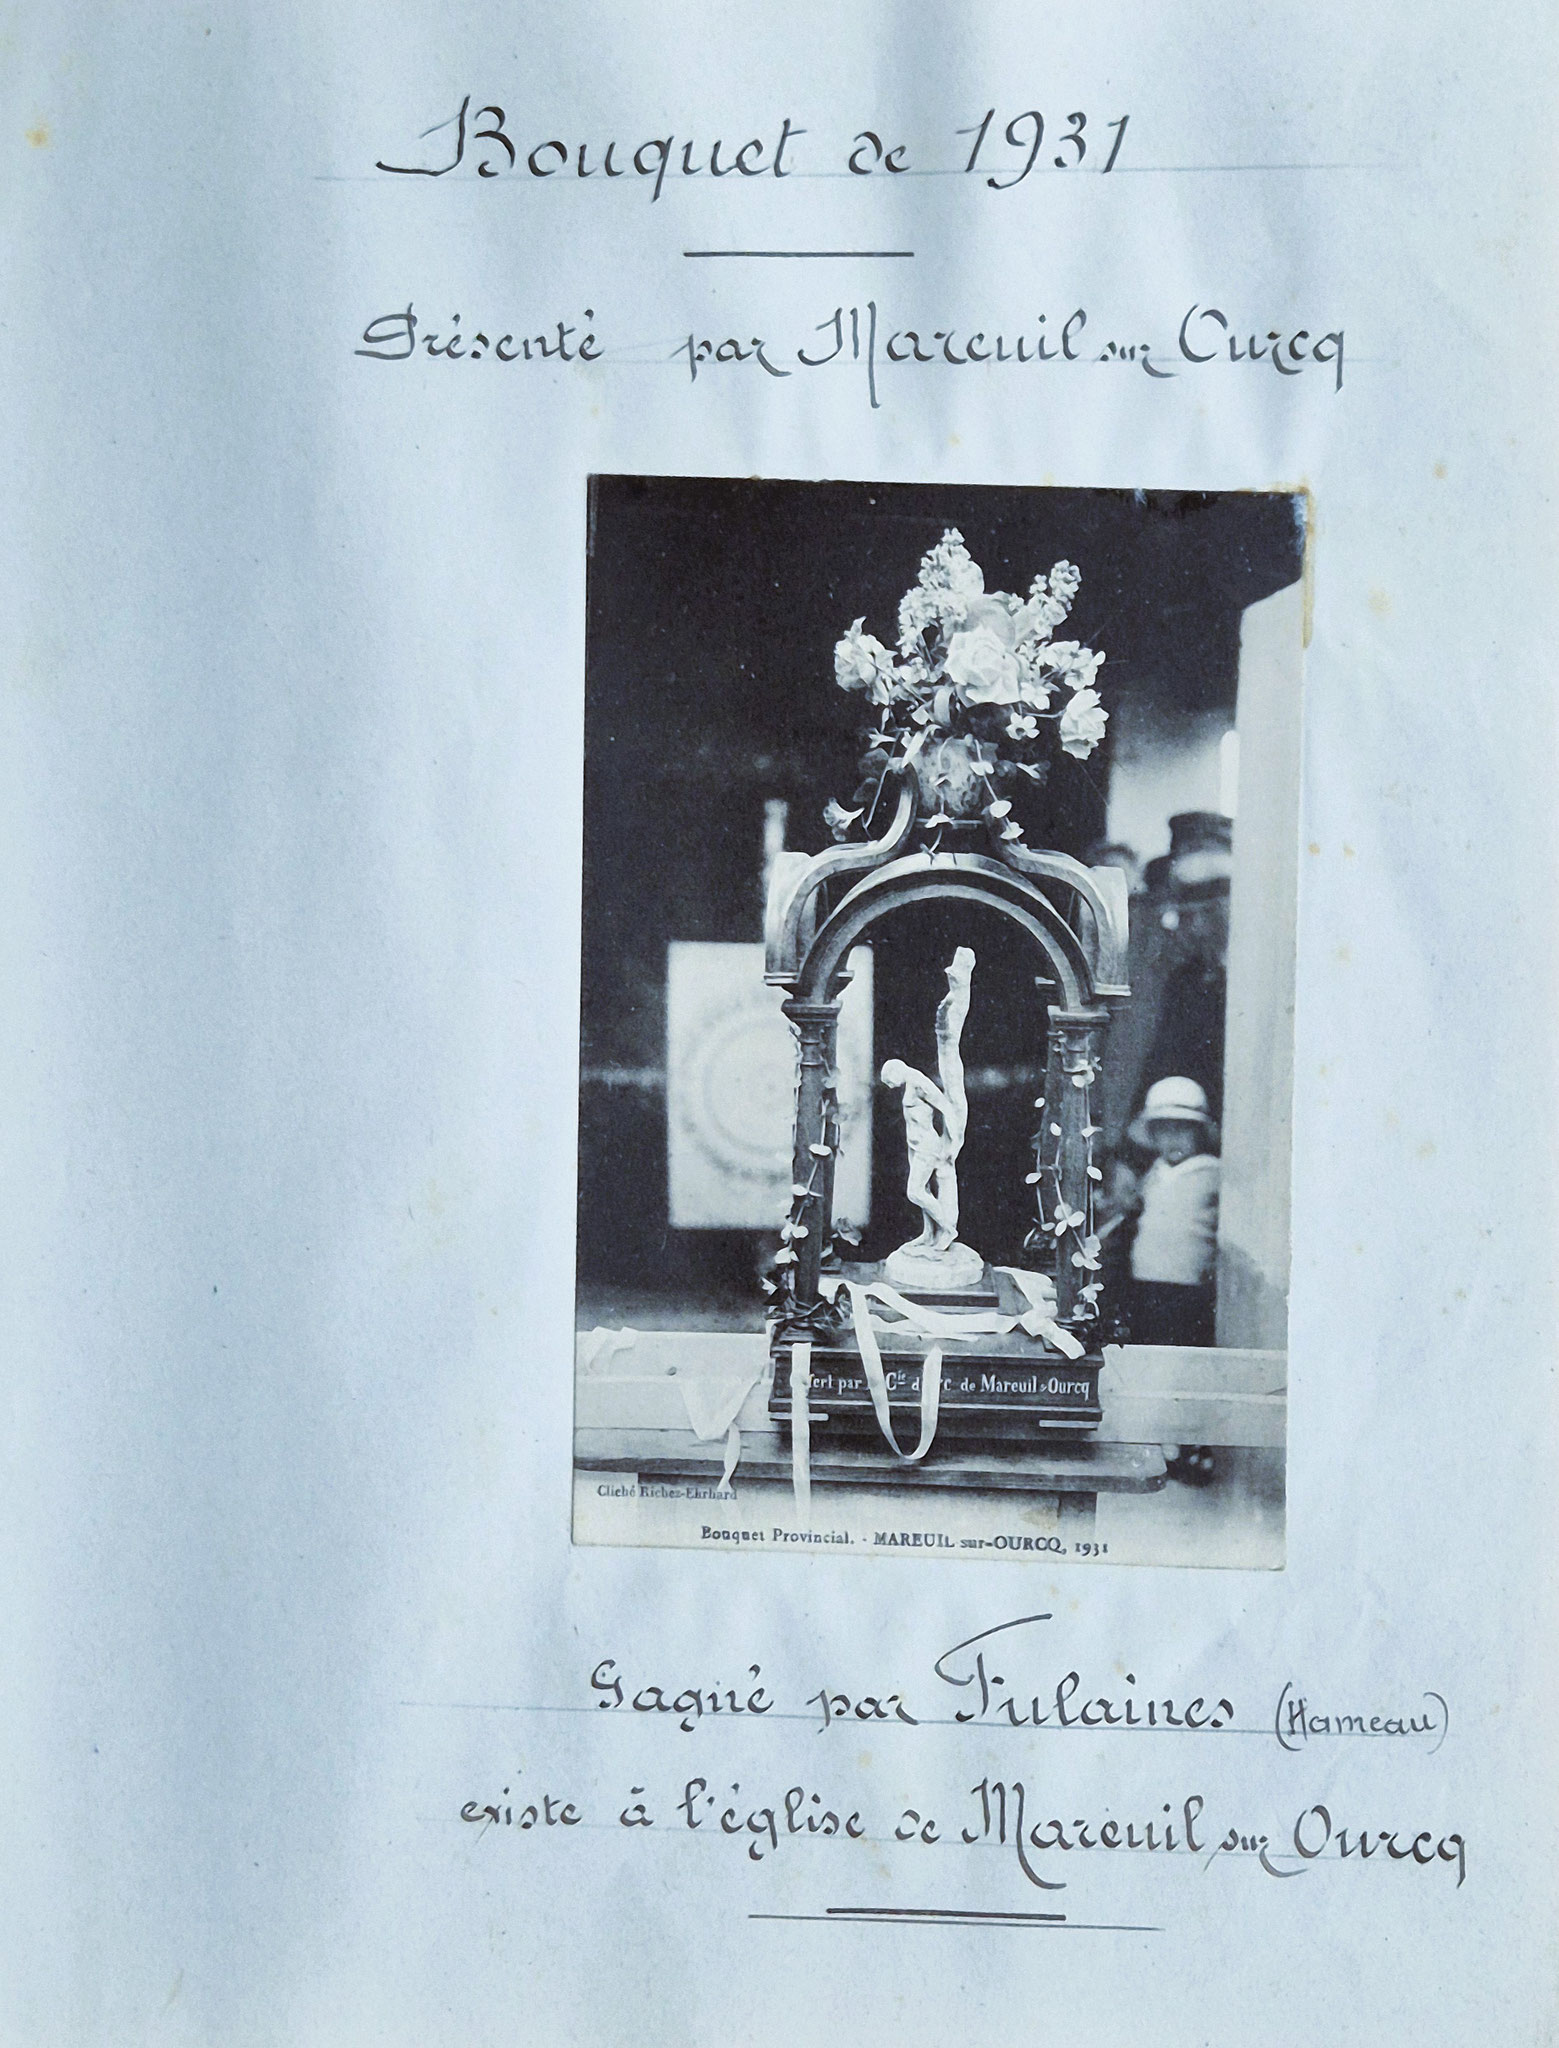 Bouquet de 1931
Présenté par Mareuil sur Ourcq
fert par Cie d' rc de Mareuil s Ourcq
Cliché Richez-Ehrhard
Bouquet Provincial. - MAREUIL sur-OURCQ, 1931
Gagné par Fulaines (Hameau)
existe à l'église de Mareuil sur Ourcq